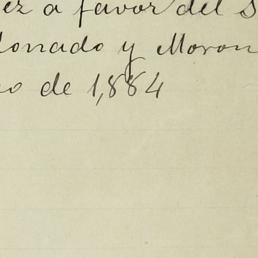 ez a favor del S
lonado y Moron
o de 1,884